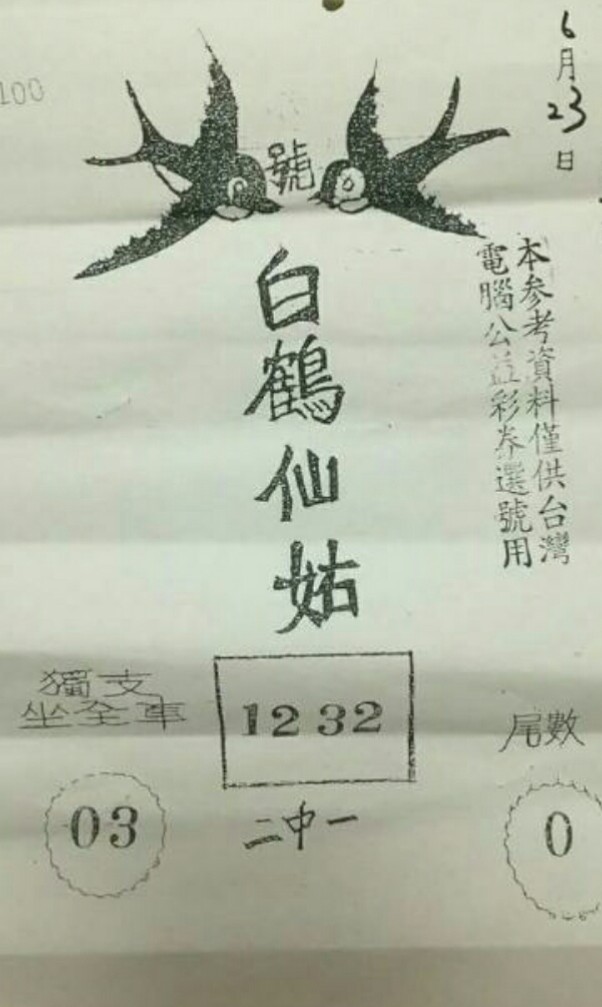 100
6月23日
號
白鶴仙姑
本参考資料僅供台灣
電腦公益彩券選號用
獨支
坐全車
03
12 32
二中一
尾數
0